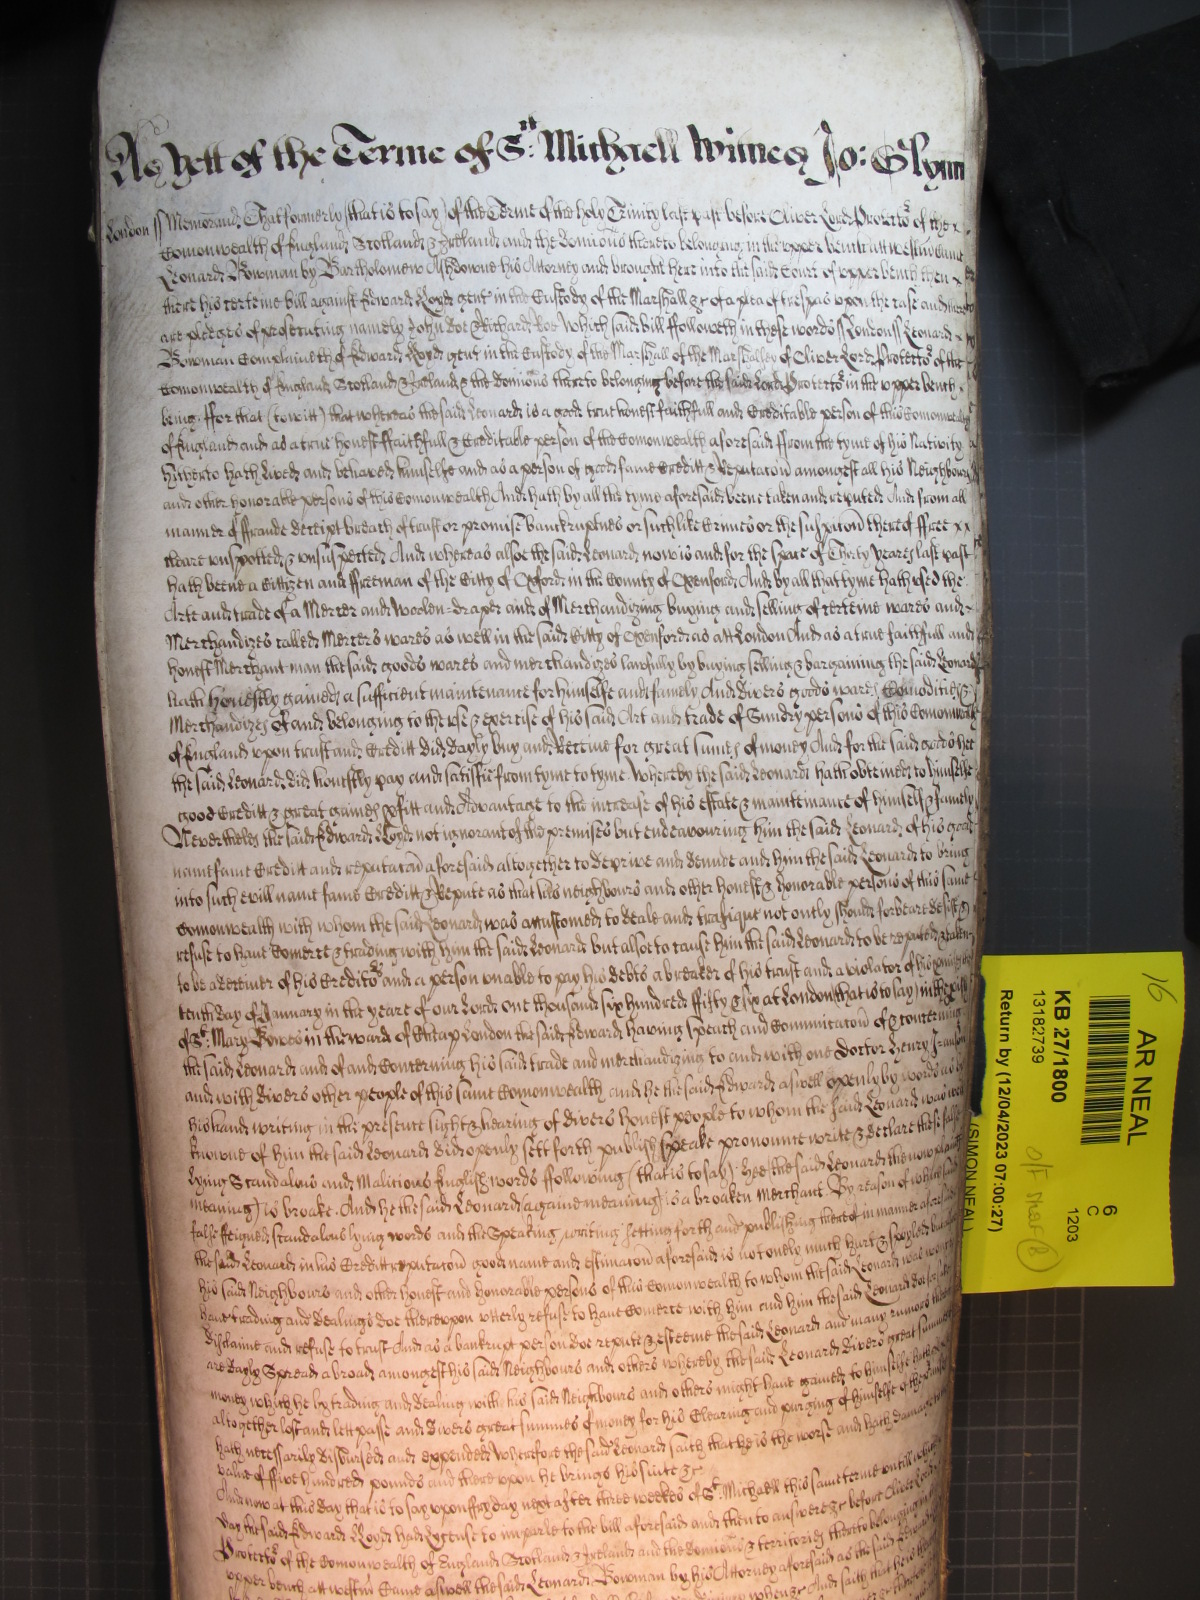 As yett of the Terme of St: Michaell Witnes Jo: Glynn
London ss Memorand That formerly (that is to say) of the Terme of the holy Trinity last past before Oliver Lord Protector of the
Comonwealth of England Scotland & Ireland and the dominions thereto belonging in the upper bench att Westm came
Leonard Bowman by Bartholomew Ashdowne his Attorney and brought here into the said Court of upper bench then
there his certeine bill against Edward Lloyd gent in the Custody of the Marshall &c of a plea of trespas upon the case and there
are pledges of prosecuting namely John Doe & Richard Roe Which said bill ffolloweth in these words ss London ss Leonard
Bowman Complaineth of Edward Lloyd gent in the Custody of the Marshall of the Marshalsey of Oliver Lord Protector of the
Comonwealth of England Scotland & Ireland & the dominions thereto belonging before the said Lord Protector in the upper bench
being ffor that (to witt) that whereas the said Leonard is a good true honest faithfull and Creditable person of this Comonwealth
of England and as a true honest ffaithfull & Creditable person of the Comonwealth aforesaid ffrom the tyme of his Nativity
hitherto hath Lived and behaved himselfe and as a person of good fame Creditt & Reputacon amongest all his Neighbours
and other honorable persons of this Comonwealth And hath by all the tyme aforesaid beene taken and reputed And from all
manner of ffraude deceipt breach of trust or promise banckruptnes or such like Crimes or the suspicon thereof ffree
cleare unspotted & unsuspected And whereas alsoe the said Leonard now is and for the space of Thirty yeares last past
hath beene a Cittizen and ffreeman of the Citty of Oxford in the County of Oxenford And by all that tyme hath used the
Arte and trade of a Mercer and Woolen=draper and of Merchandizing buying and selling of certeine wares and
Merchandizes called Mercers wares as well in the said Citty of Oxenford as att London And as a true faithfull and
honest Merchant man the said goods wares and merchandizes lawfully by buying selling & bargaining the said Leonard
hath honestly gained a sufficient maintenance for himselfe and family And divers goods wares Comodities &
Merchandizes of and belonging to the use & exercise of his said Art and trade of Sundry persons of this Comonwealth
of England upon trust and Creditt did dayly buy and Receive for great sumes of money And for the said goods hee
the said Leonard did honestly pay and sattisfie from tyme to tyme Whereby the said Leonard hath obteined to himselfe
good Creditt & great gaines pfitt and Advantage to the increase of his estate & maintenance of himself & family
Neverthelesse the said Edward Lloyd not ignorant of the premises but endeavouring him the said Leonard of his good
name fame Creditt and reputacon aforesaid altogether to deprive and denude and him the said Leonard to bring
into such evill name fame Creditt & Repute as that his neighbours and other honest & honorable persons of this same
Comonwealth with whom the said Leonard was accustomed to deale and trafique not onely should forbeare desist &
refuse to have Comerce & trading with him the said Leonard but alsoe to cause him the said Leonard to be reputed & taken
to be a deceiver of his Creditors and a person unable to pay his debts a breaker of his trust and a violator of his promises
tenth day of January in the yeare of our Lord one thousand six hundred ffifty & six at London (that is to say) in the parish
of St: Mary Bowes in the ward of Cheap London the said Edward haveing Speach and Comunicacon of & concerning
the said Leonard and of and Concerning his said trade and merchandizing to and with one Doctor Henry
and with divers other people of this same Comonwealth and he the said Edward aswell openly by words as by
his hand writing in the presence sight & hearing of divers honest people to whom the said Leonard was well
knowne of him the said Leonard did openly sett forth publish Speake pronounce write & declare these false
lying Scandalous and Malicious English words ffollowing (that is to say) Hee (the said Leonard the now plaintiff
meaning) is broake. And he the said Leonard (againe meaning) is a broaken Merchant By reason of which said
false ffeigned scandalous lying words and the Speaking writing setting forth and publishing thereof in manner aforesaid
the said Leonard in his Creditt reputacon good name and estimacon aforesaid is not onely much hurt & spoyled but
his said Neighbours and other honest and honorable persons of this Comonwealth to whom the said Leonard was
have trading and dealings doe thereupon utterly refuse to have Comerce with him and him the said Leonard doe
disclaime and refuse to trust And as a bankrupt person doe repute & esteeme the said Leonard and many rumors
are dayly Spread abroad amongest his said Neighbours and others whereby the said Leonard divers great summes
money which he by trading and dealing with his said Neighbours and others might have gained to himselfe hath
altogether lost and lett passe and divers great summes of money for his Clearing and purging of himselfe of the
hath necessarily disbursed and expended Wherefore the said Leonard saith that he is the worse and hath damage to the
value of ffive hundred pounds and thereupon he brings his suite &c
And now at this day that is to say upon ffryday next after three weekes of St: Michaell this same terme untill which
day the said Edward Lloyd had Lycense to imparle to the bill aforesaid and then to answere &c before Oliver Lord
Protector of the Comonwealth of England Scotland & Ireland and the dominions & territories thereto belonging in
upper bench att westm Came aswell the said Leonard Bowman by his Attorney aforesaid as the said Edward
AR NEAL
6
C
1203
KB 27/1800
13182739
Return by (12/04/2023 07:00:27)
(SIMON NEAL)
16